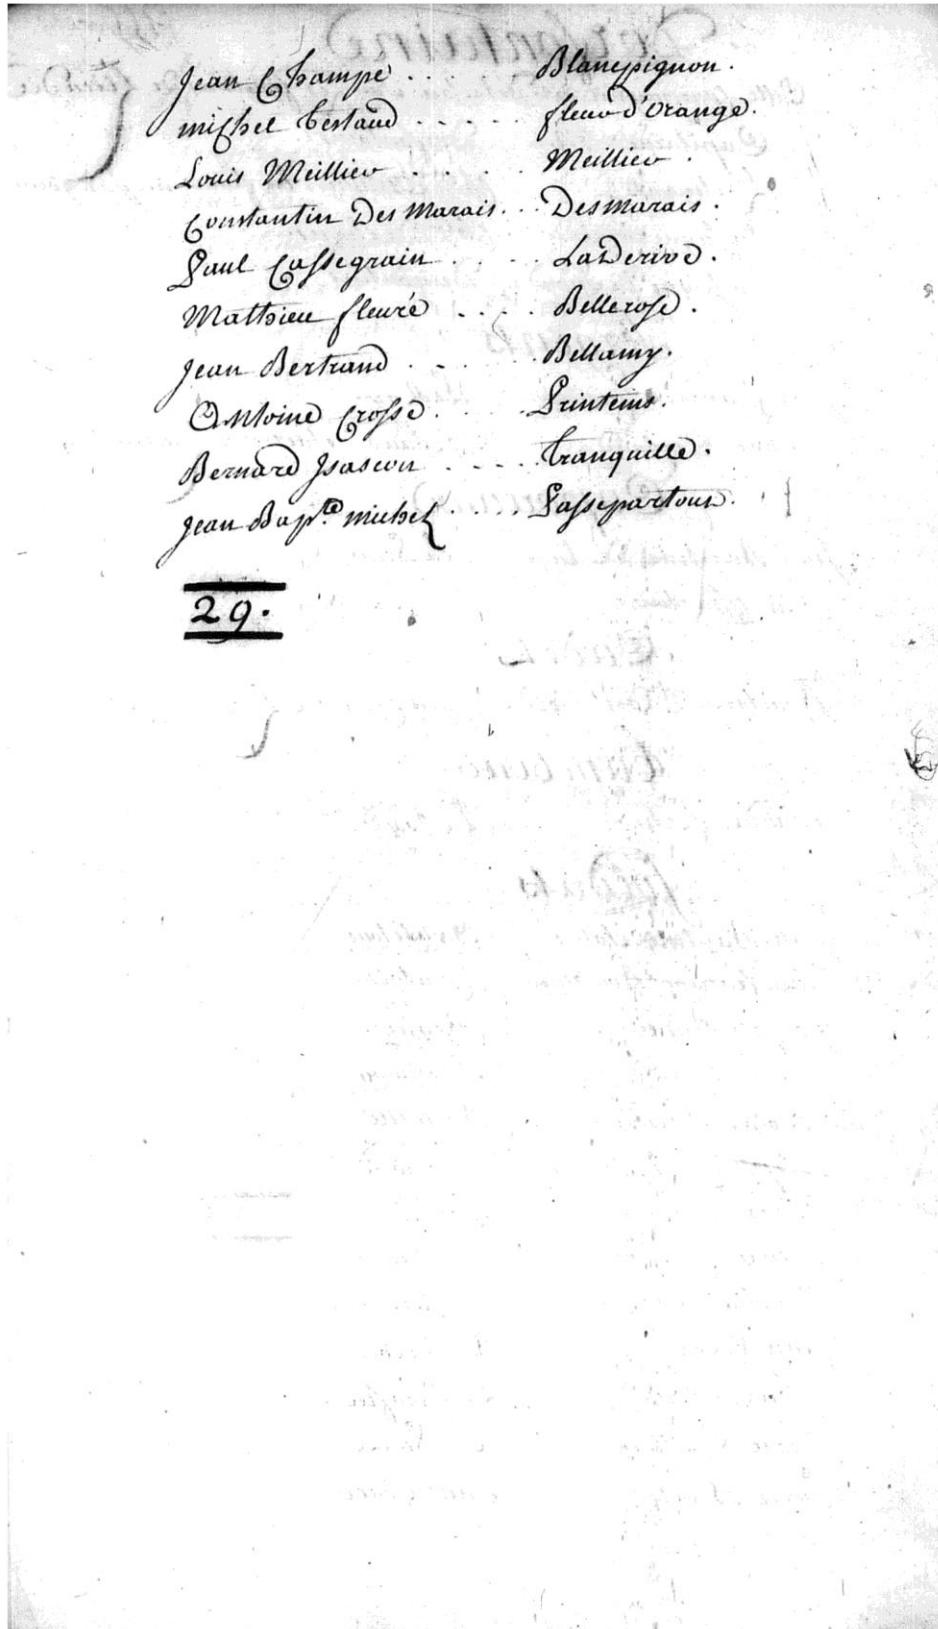 Jean Champe ..... Blancpignon.
Michel Testaud ..... fleur d'orange.
Louis Meillier ..... Meillier.
Constantin Des Marais ... Des Marais.
Paul Cassegrain .... La Derive.
Mathieu fleuré .... Bellerose.
Jean Bertrand ..... Bellamy.
Antoine Crosse .... Printems.
Bernard .... Tranquille.
Jean Bap.te Michel .... Passepartout.
29.